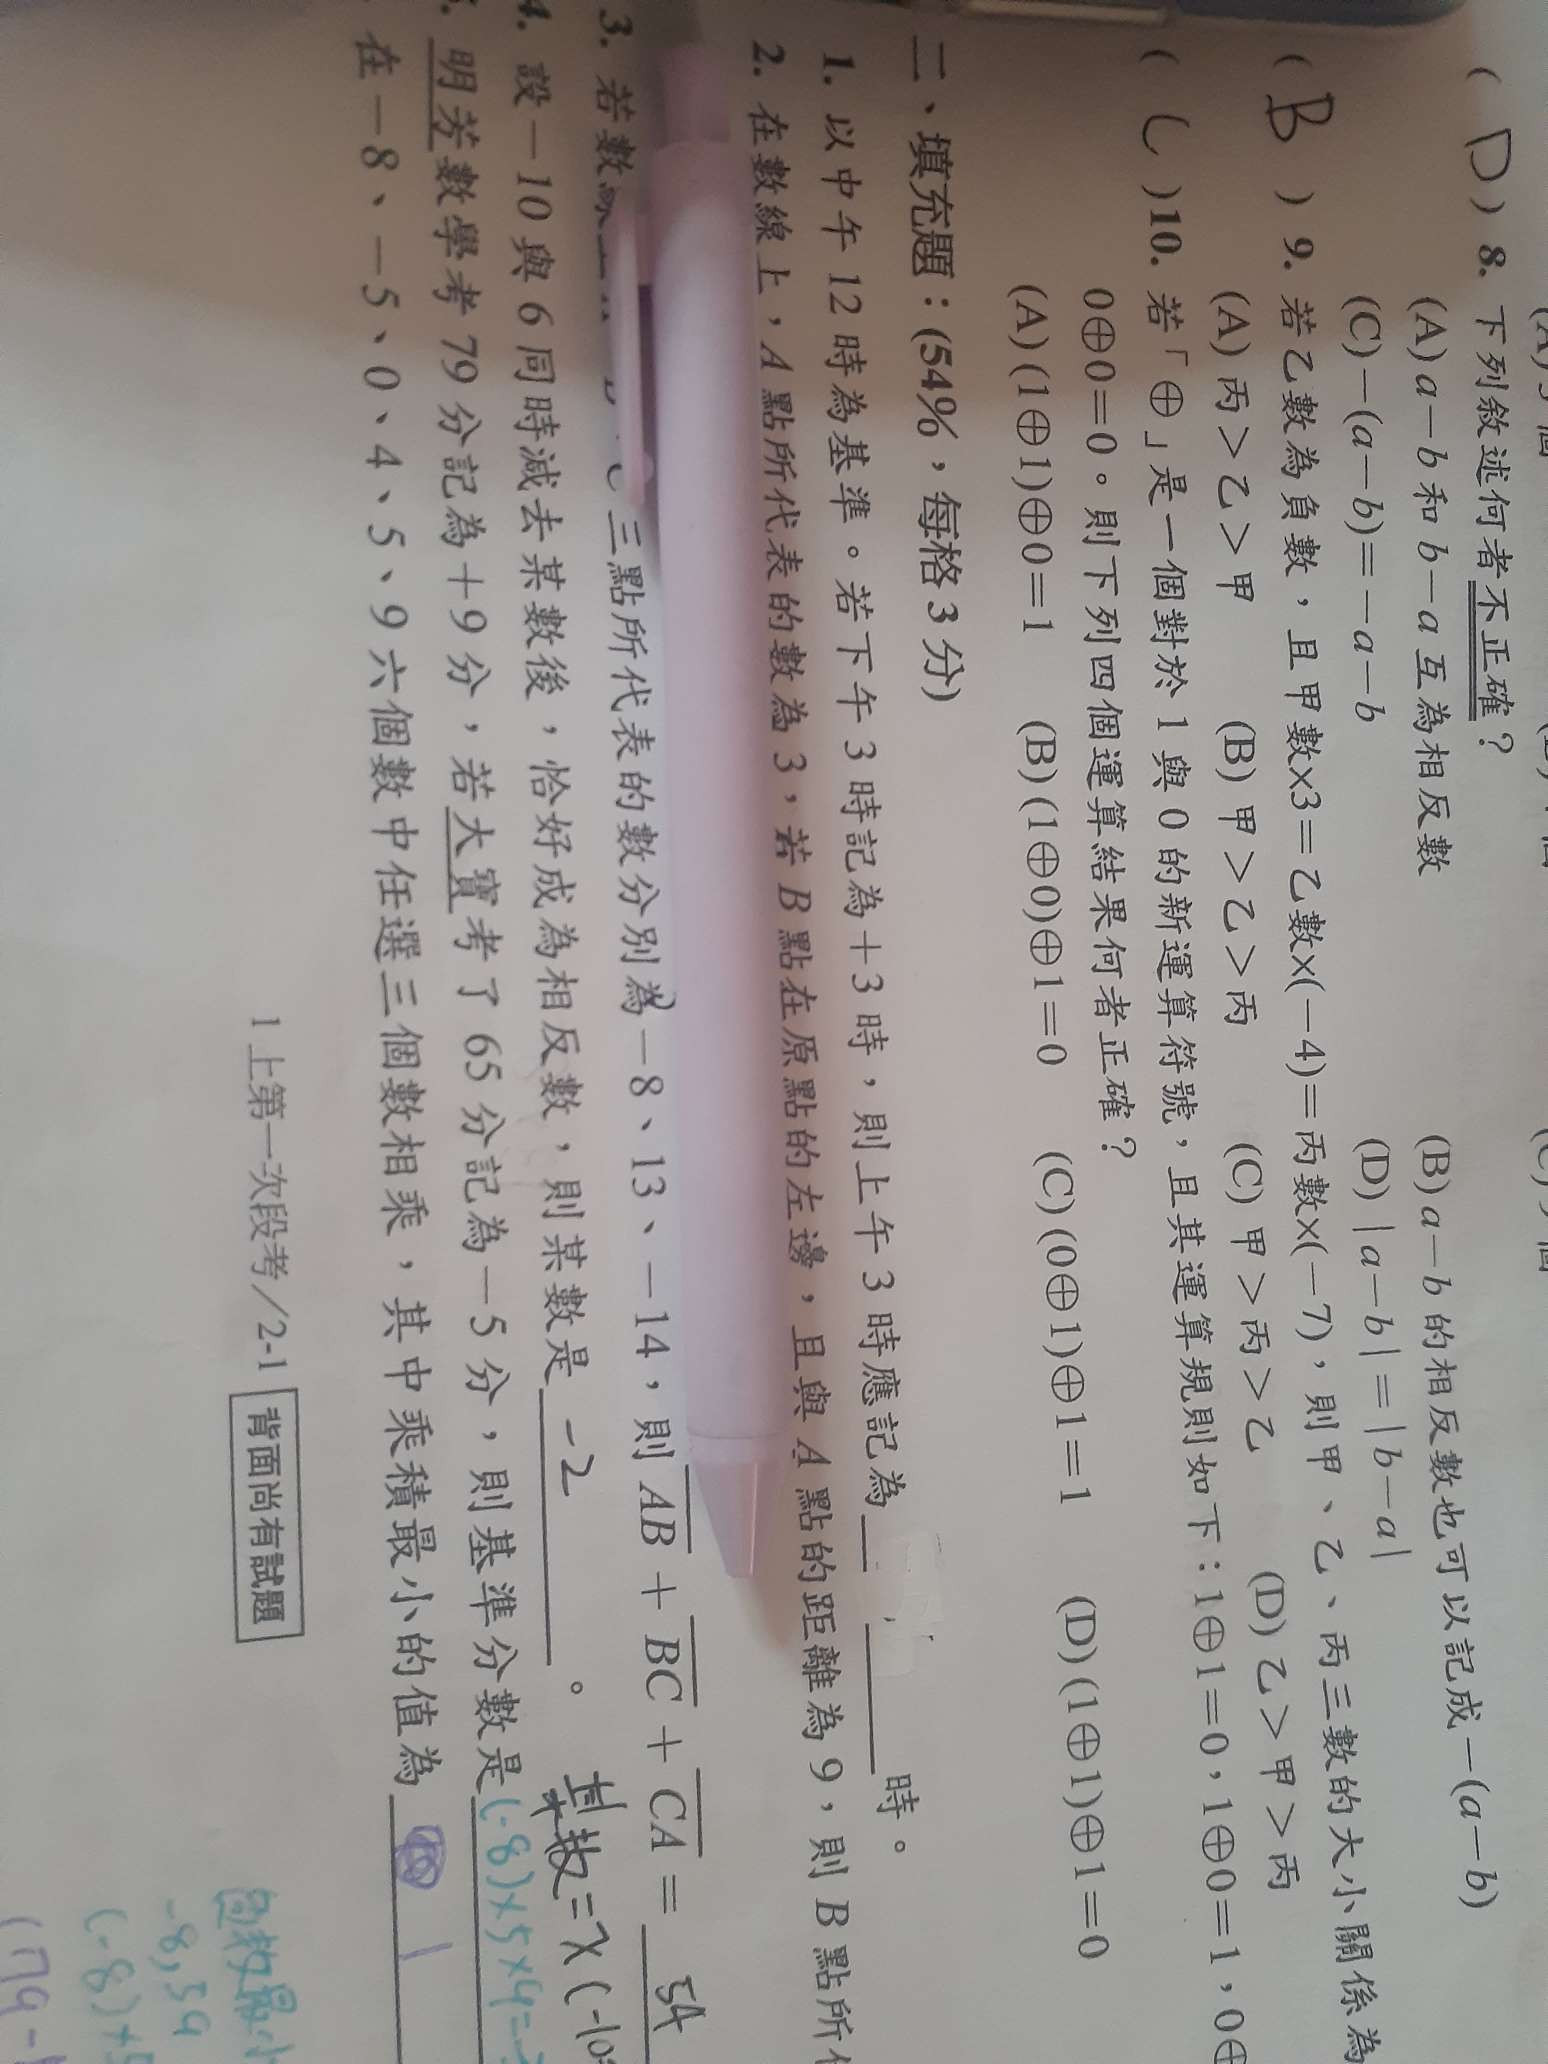 ( D ) 8. 下列敘述何者不正確？
(A) a－b 和 b－a 互為相反數 (B) a－b 的相反數也可以記成－(a－b)
(C)－(a－b)＝－a－b (D)｜a－b｜＝｜b－a｜
( B ) 9. 若乙數為負數，且甲數×3＝乙數×(－4)＝丙數×(－7)，則甲、乙、丙三數的大小關係為
(A) 丙＞乙＞甲 (B) 甲＞乙＞丙 (C) 甲＞丙＞乙 (D) 乙＞甲＞丙
( C )10. 若「⊕」是一個對於 1 與 0 的新運算符號，且其運算規則如下：1⊕1＝0，1⊕0＝1，0⊕
0⊕0＝0。則下列四個運算結果何者正確？
(A) (1⊕1)⊕0＝1 (B) (1⊕0)⊕1＝0 (C) (0⊕1)⊕1＝1 (D) (1⊕1)⊕1＝0
二、填充題：(54%，每格 3 分)
1. 以中午 12 時為基準。若下午 3 時記為＋3 時，則上午 3 時應記為 時。
2. 在數線上，A 點所代表的數為 3，若 B 點在原點的左邊，且與 A 點的距離為 9，則 B 點所
3. 若數 三點所代表的數分別為－8、13、－14，則 AB＋BC＋CA＝ 54
4. 設－10 與 6 同時減去某數後，恰好成為相反數，則某數是 -2 。
明芳數學考 79 分記為＋9 分，若大寶考了 65 分記為－5 分，則基準分數是 (-8)×5×9=
在－8、－5、0、4、5、9 六個數中任選三個數相乘，其中乘積最小的值為
1 上第一次段考／2-1 背面尚有試題
-8,59